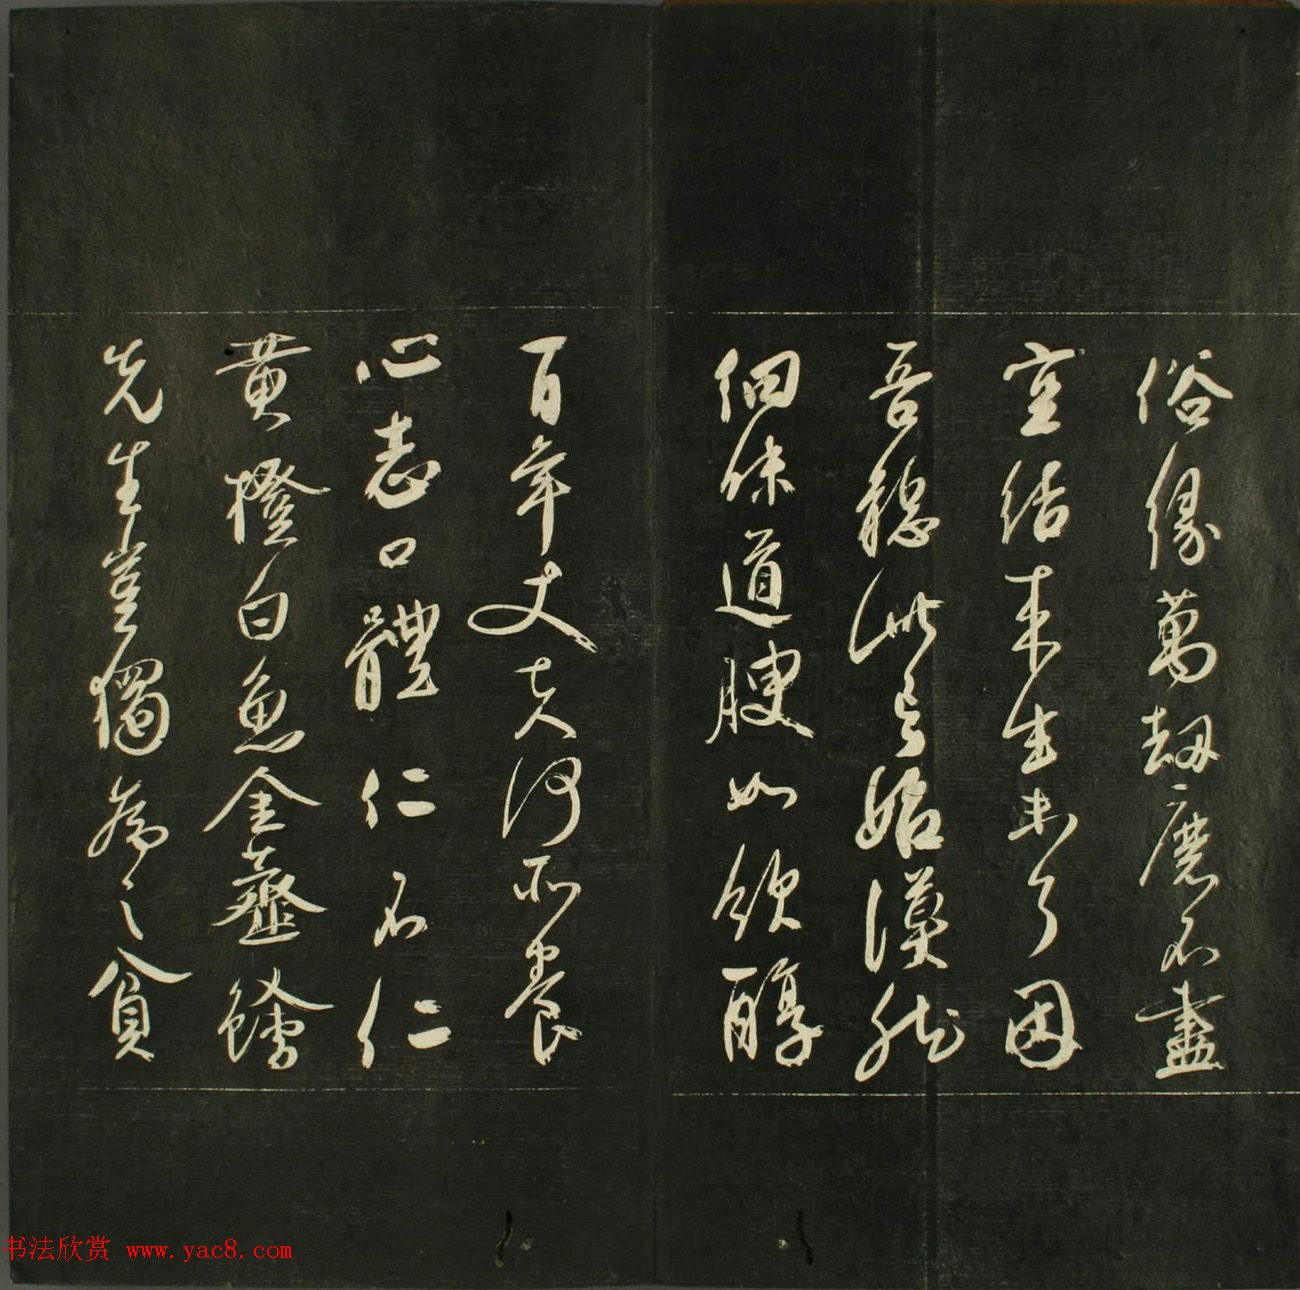 俗緣萬劫磨不盡
空結來生未了因
吾穩此時始漠然
細味道腴如飲醇
百年丈夫何所養
心志口體仁不仁
黃橙白魚金虀鱠
先生豈獨為之貧
书法欣赏 www.yac8.com